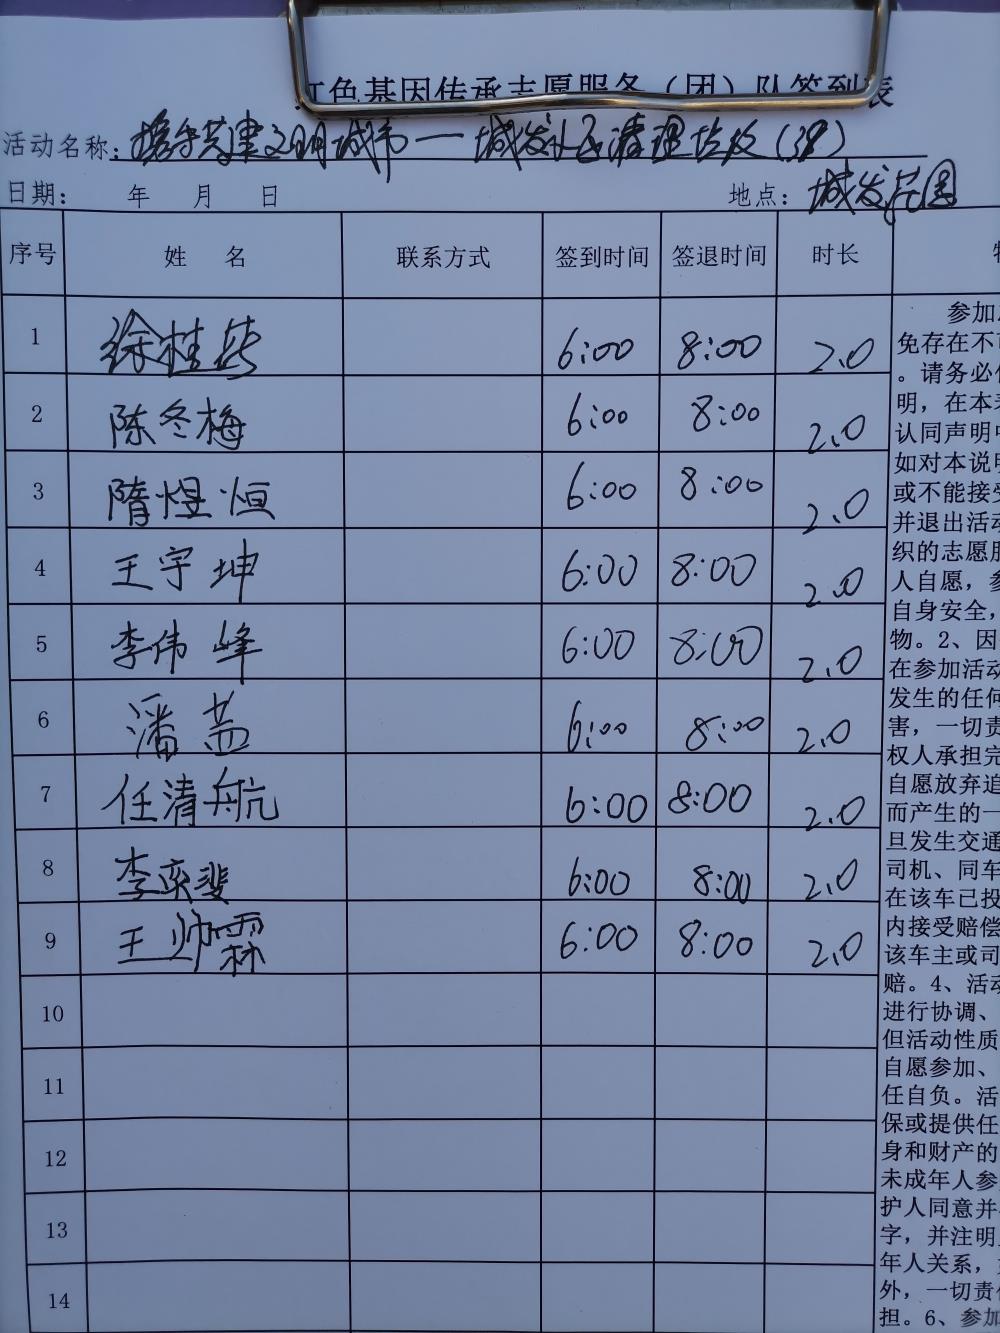 红色基因传承志愿服务（团）队签到表
活动名称：携手共建文明城市一城发社区清理垃圾（38）
日期： 年 月 日 地点：城发花园
序号 姓 名 联系方式 签到时间 签退时间 时长
1 徐桂 6:00 8:00 2.0
2 陈冬梅 6:00 8:00 2.0
3 隋煜恒 6:00 8:00 2.0
4 王宇坤 6:00 8:00 2.0
5 李伟峰 6:00 8:00 2.0
6 潘 6:00 8:00 2.0
7 任清航 6:00 8:00 2.0
8 李奕斐 6:00 8:00 2.0
9 王帅霖 6:00 8:00 2.0
10
11
12
13
14
参加
免存在不
。请务必
明，在本
认同声明
如对本说明
或不能接受
并退出活动
织的志愿
人自愿，参
自身安全，
物。2、因
在参加活动
发生的任何
害，一切责
权人承担完
自愿放弃追
而产生的一
旦发生交通
司机、同车
在该车已投
内接受赔偿
该车主或司
赔。4、活动
进行协调、
但活动性质
自愿参加、
任自负。活
保或提供任
身和财产的
未成年人参
护人同意并
字，并注明
年人关系，
外，一切责任
担。6、参加